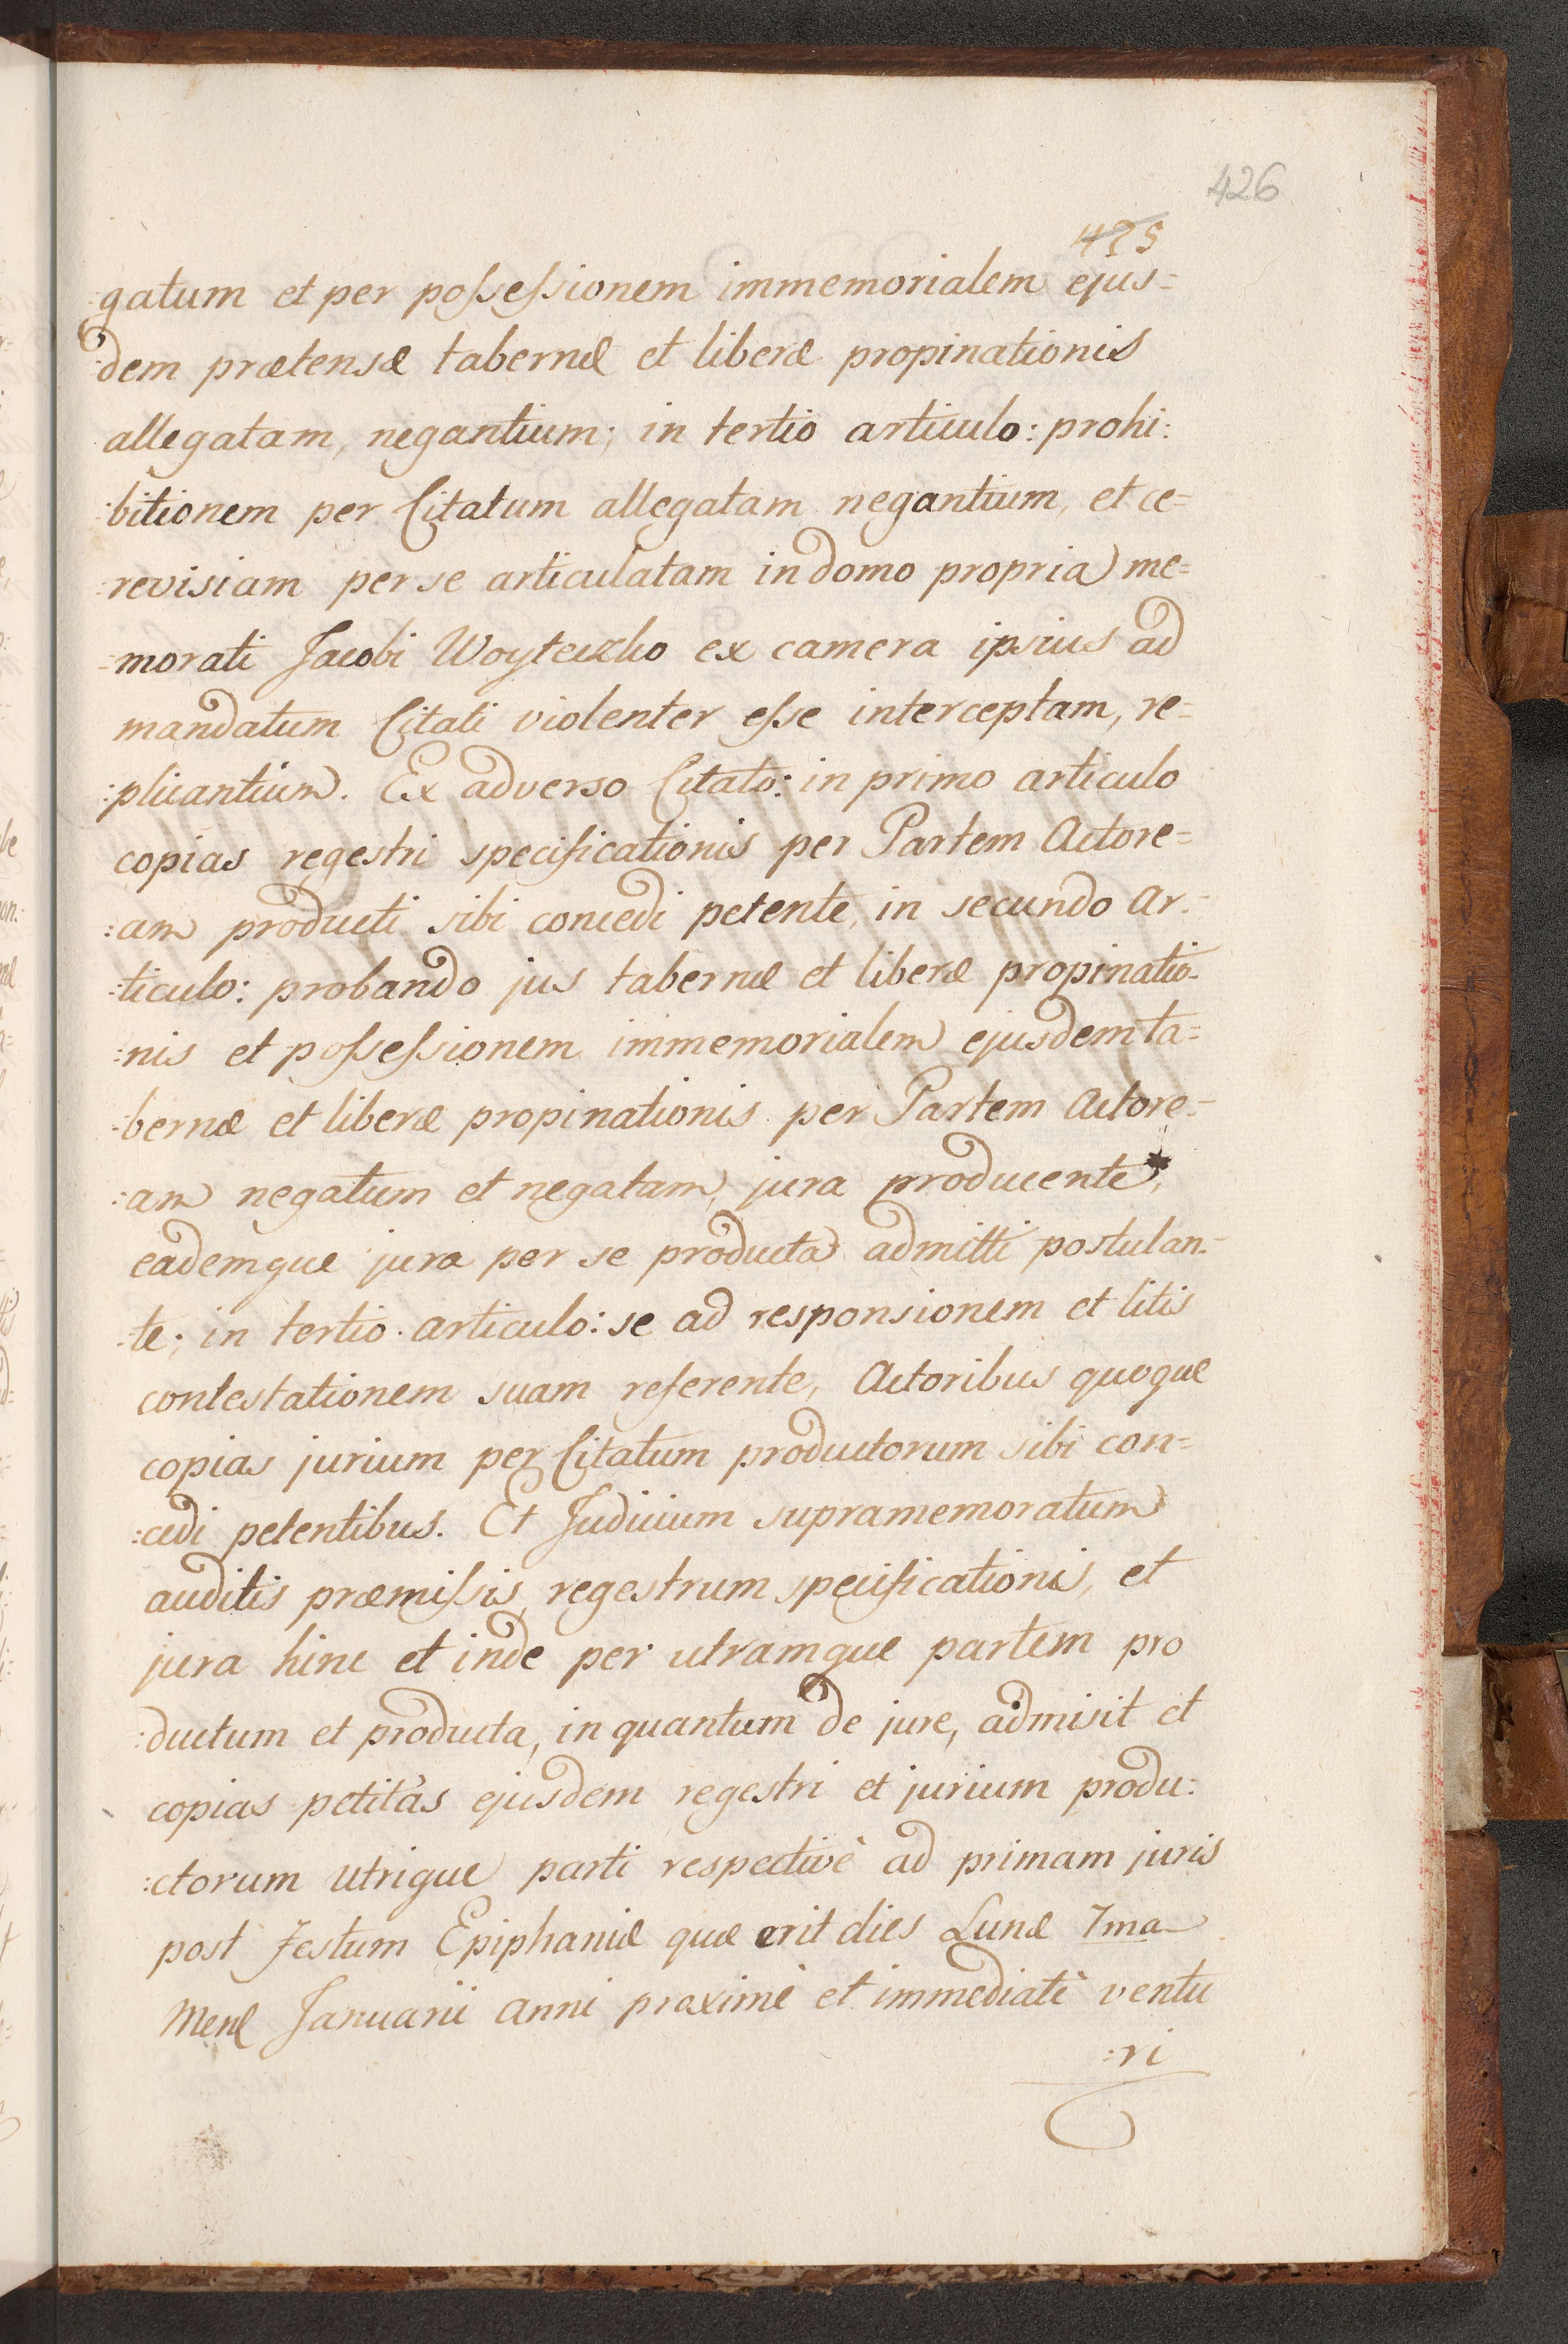 426
475
gatum et per possessionem immemorialem ejus=
dem prætensæ tabernæ et liberæ propinationis
allegatam, negantium; in tertio articulo: prohi:
:bitionem per Citatum allegatam negantium, et ce=
:revisiam per se articulatam in domo propria me=
=morati Jacobi Woyteczko ex camera ipsius ad
mandatum Citati violenter esse interceptam, re=
:plicantium. Ex adverso Citato: in primo articulo
copias regestri specificationis per Partem Actore=
:am producti sibi concedi petente, in secundo Ar:
:ticulo: probando jus tabernæ et liberæ propinatio-
:nis et possessionem immemorialem ejusdem ta=
:bernæ et liberæ propinationis per Partem Actore=
:am negatum et negatam, jura producente,
eademque jura per se producta admitti postulan=
te; in tertio articulo: se ad responsionem et litis
contestationem suam referente, Actoribus quoque
copias jurium per Citatum productorum sibi con=
:cedi petentibus. Et Judicium supramemoratum
auditis præmissis, regestrum specificationis, et
jura hinc et inde per utramque partem pro
:ductum et producta, in quantum de jure, admisit et
copias petitas ejusdem regestri et jurium produ:
:ctorum utrique parti respectivè ad primam juris
post Festum Epiphaniæ quæ erit dies Lunæ 7ma
Mens Januarii anni proximè et immediatè ventu
:ri